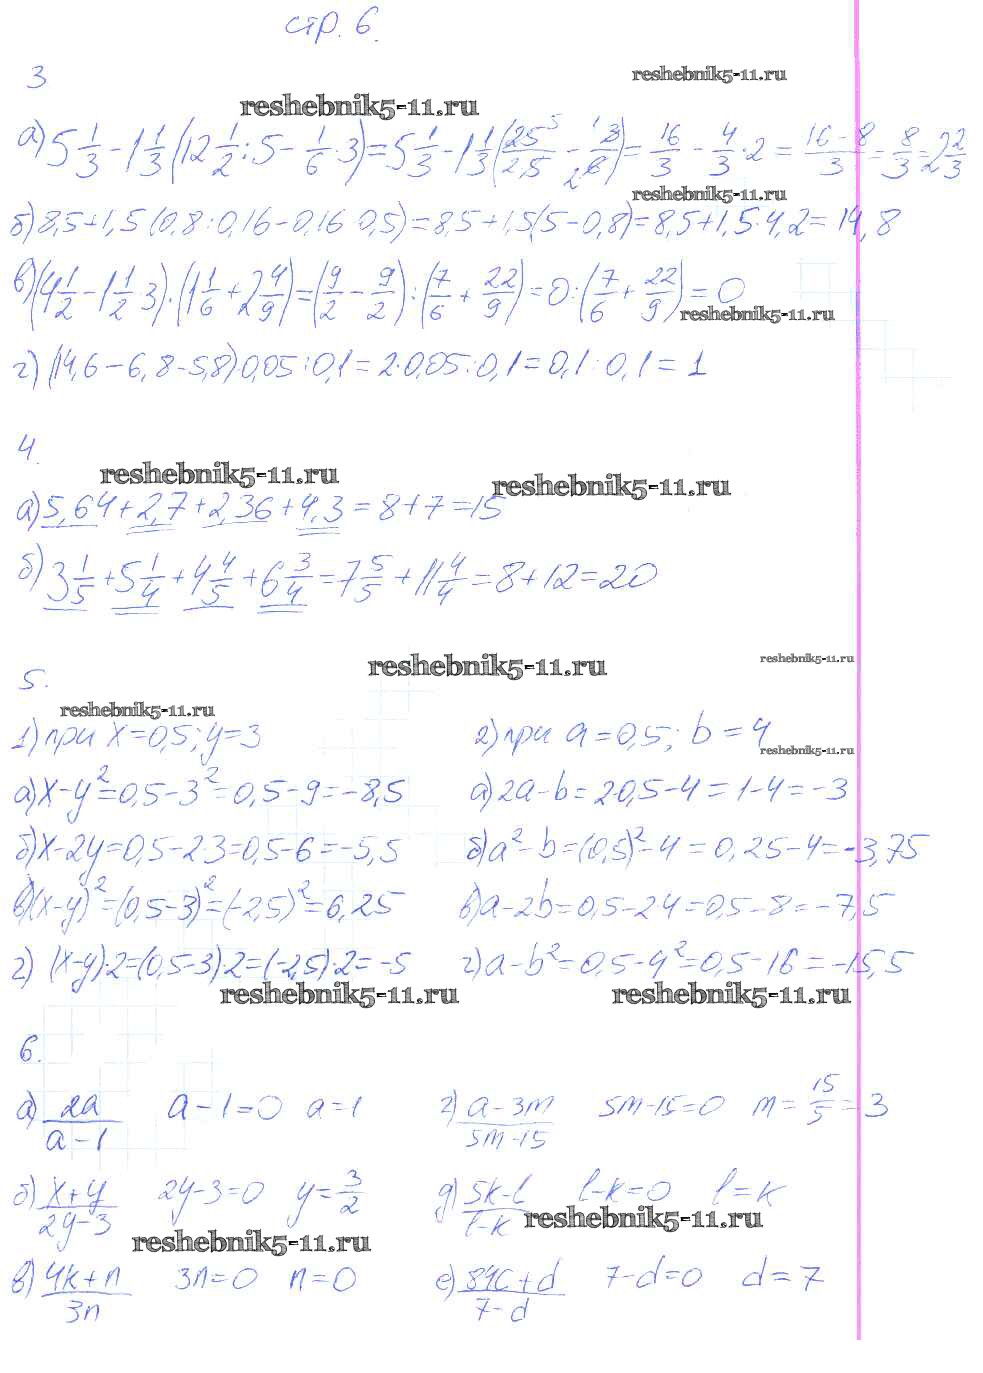 стр. 6.
3
reshebnik5-11.ru
reshebnik5-11.ru
а) 5 1/3 - 1 1/3 (12 1/2 : 5 - 1/6 · 3) = 5 1/3 - 1 1/3 (25 5/2·5 - 1 3/2 6) = 16/3 - 4/3 · 2 = 16-8/3 = 8/3 = 2 2/3
reshebnik5-11.ru
б) 8,5+1,5 (0,8 : 0,16 - 0,16 0,5) = 8,5 + 1,5(5 - 0,8) = 8,5 + 1,5·4,2 = 14,8
в) (4 1/2 - 1 1/2 3) · (1 1/6 + 2 4/9) = (9/2 - 9/2) : (7/6 + 22/9) = 0 : (7/6 + 22/9) = 0
reshebnik5-11.ru
г) (14,6 - 6,8 - 5,8) 0,05 : 0,1 = 2·0,05 : 0,1 = 0,1 : 0,1 = 1
4.
reshebnik5-11.ru
reshebnik5-11.ru
а) 5,64 + 2,7 + 2,36 + 4,3 = 8+7=15
б) 3 1/5 + 5 1/4 + 4 4/5 + 6 3/4 = 7 5/5 + 11 4/4 = 8+12=20
reshebnik5-11.ru
reshebnik5-11.ru
5.
reshebnik5-11.ru
1) при x=0,5; y=3
2) при a=0,5; b=4
reshebnik5-11.ru
а) x-y²=0,5-3²=0,5-9=-8,5
а) 2a-b=2·0,5-4=1-4=-3
б) x-2y=0,5-2·3=0,5-6=-5,5
б) a²-b=(0,5)²-4=0,25-4=-3,75
в) (x-y)²=(0,5-3)²=(-2,5)²=6,25
в) a-2b=0,5-2 4=0,5-8=-7,5
г) (x-y)·2=(0,5-3)·2=(-2,5)·2=-5
г) a-b²=0,5-4²=0,5-16=-15,5
reshebnik5-11.ru
reshebnik5-11.ru
6.
а) 2a/a-1 a-1=0 a=1
г) a-3m/5m-15 5m-15=0 m=15/5=3
б) x+y/2y-3 2y-3=0 y=3/2
д) 5k-l/l-k l-k=0 l=k
reshebnik5-11.ru
reshebnik5-11.ru
в) 4k+n/3n 3n=0 n=0
е) 84c+d/7-d 7-d=0 d=7